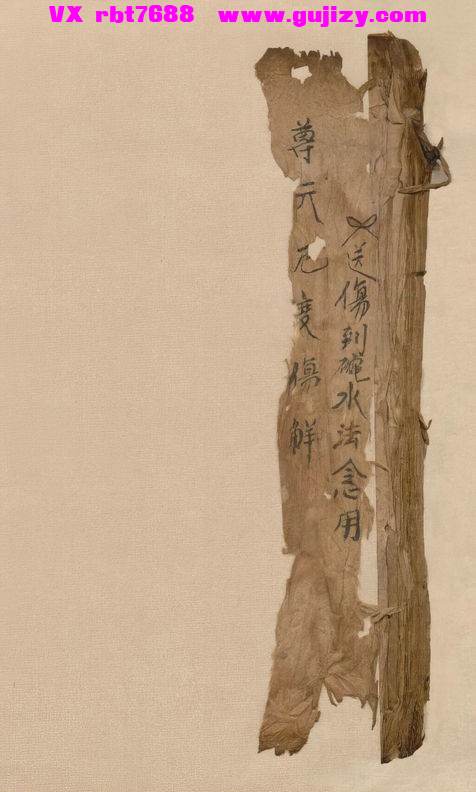 VX rbt7688 www.gujizy.com
送傷到碗水法念用
尊元厄度傷解